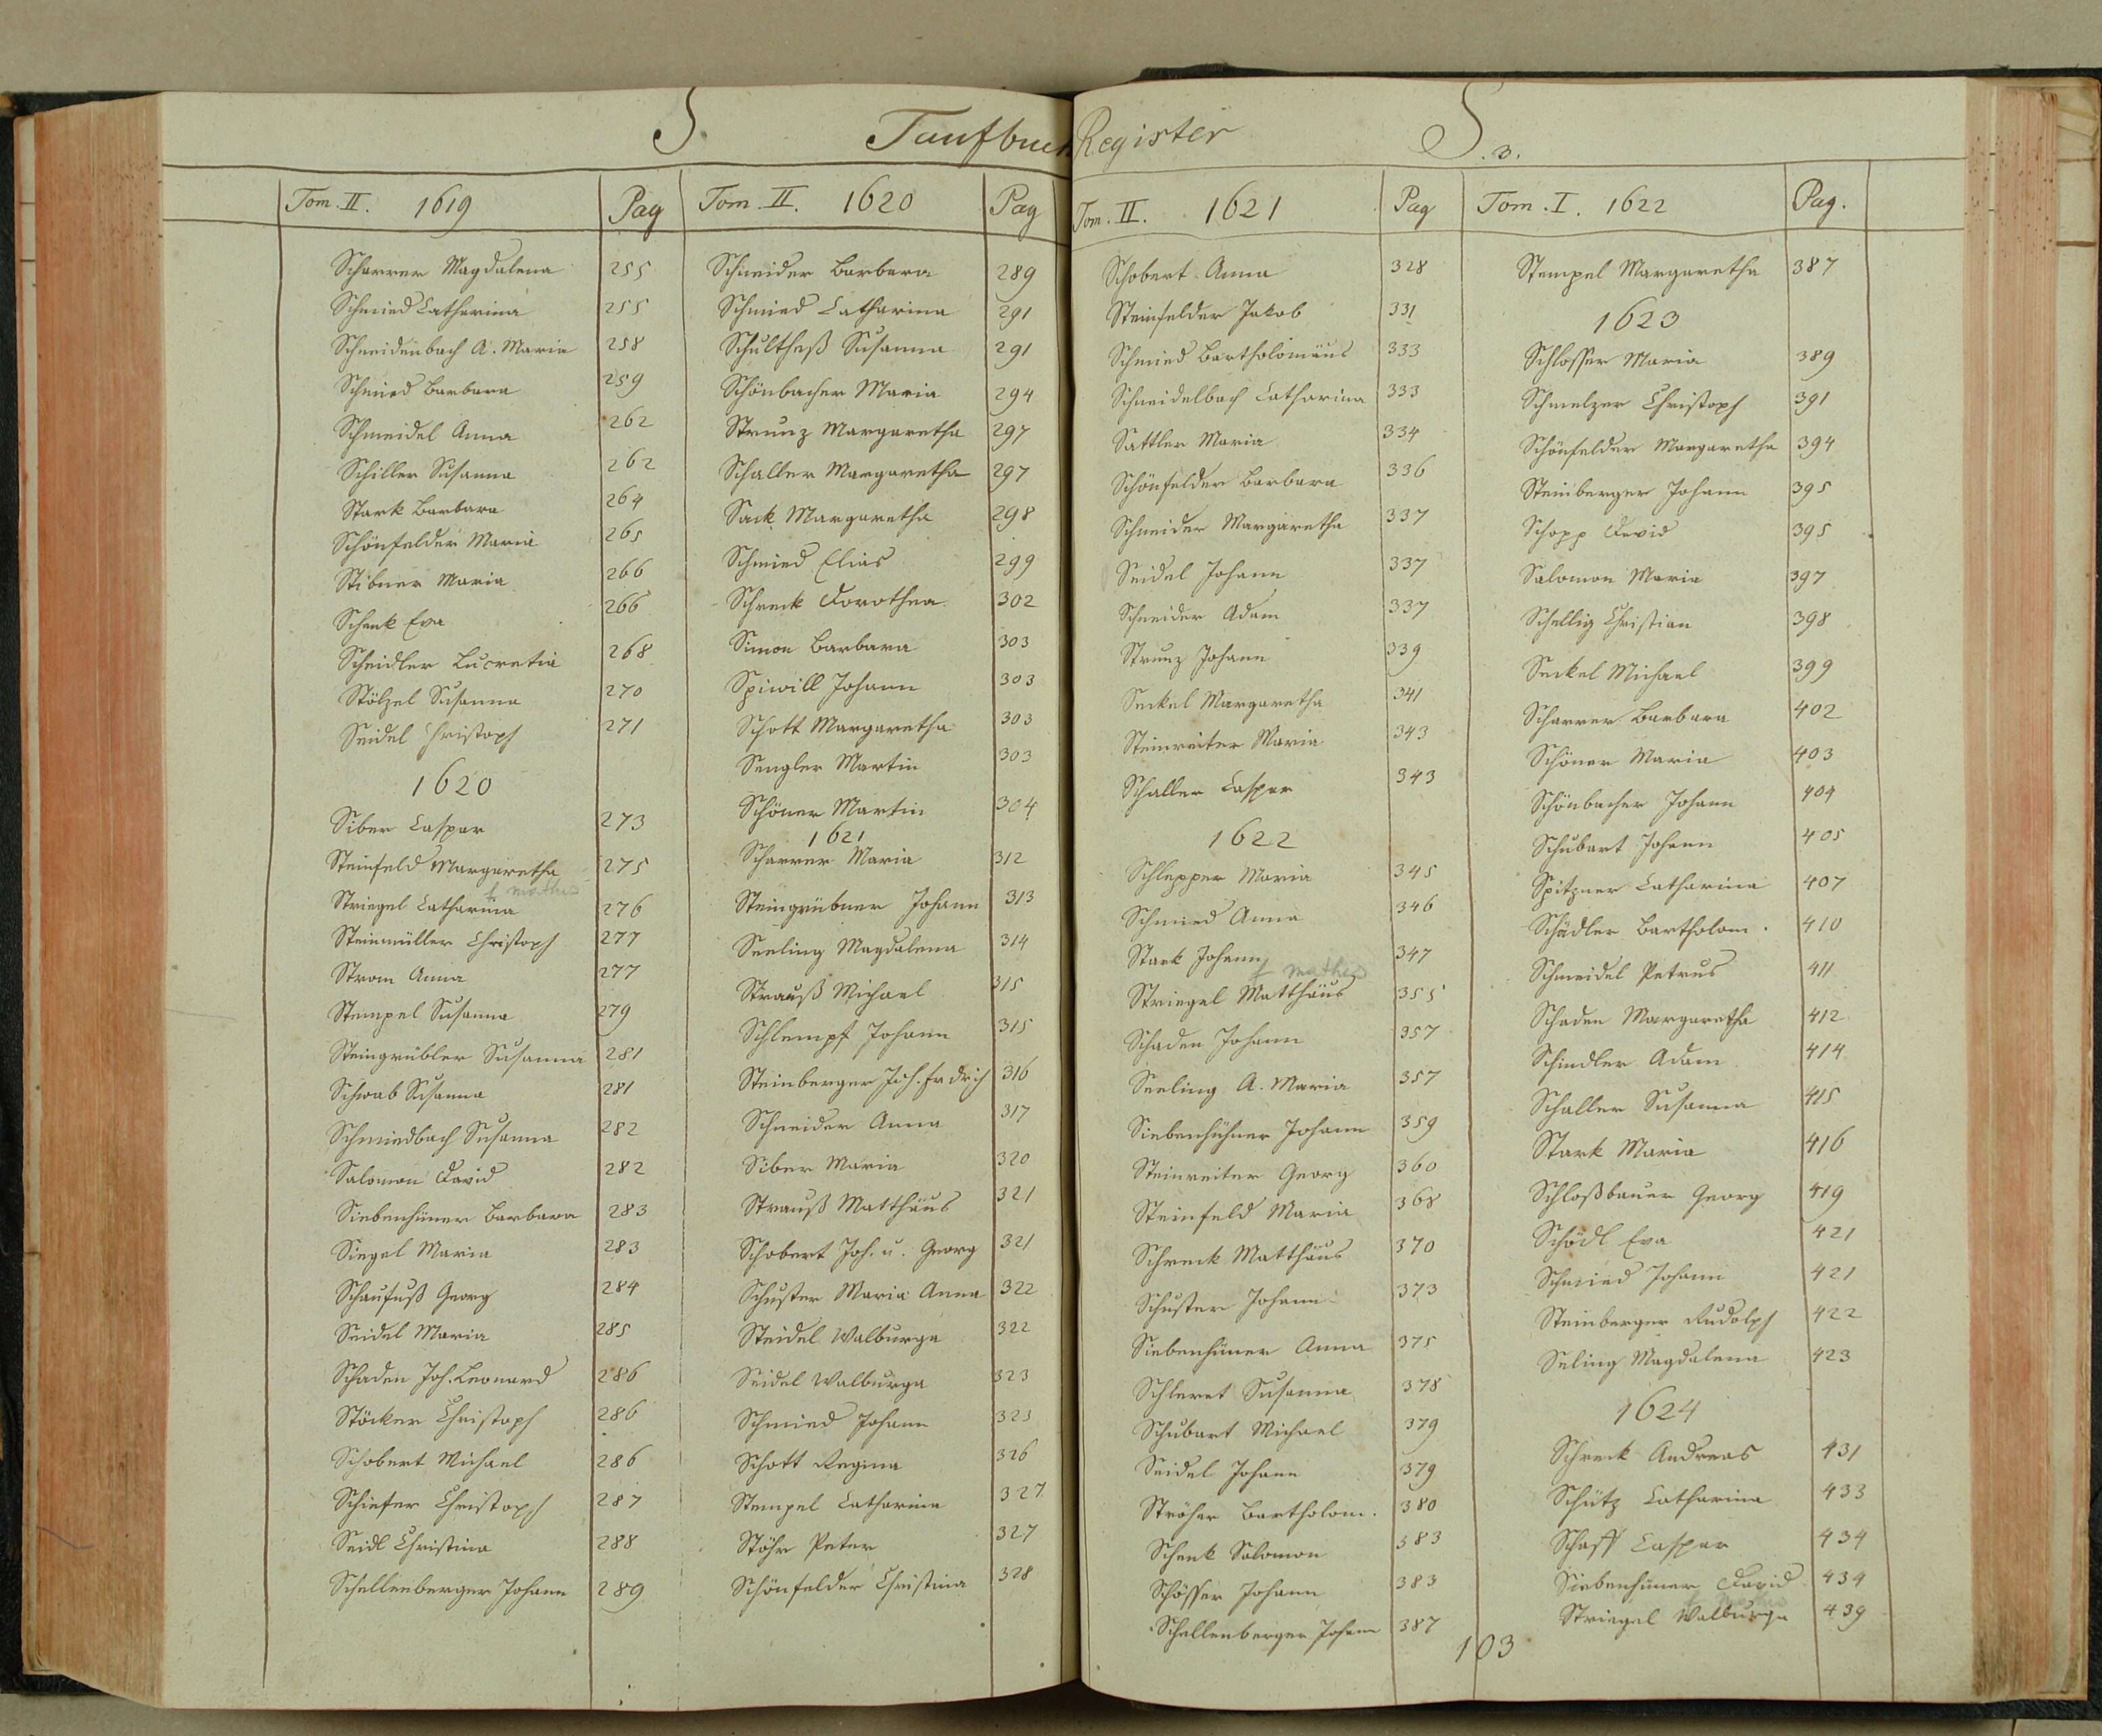 S. Taufbuch Register S. 3.
Tom. II. 1619 Pag
Scharrer Magdalena 255
Schmied Catharina 255
Schneidenbach A. Maria 258
Schmied Barbara 259
Schmeidel Anna 262
Schiller Susanna 262
Stark Barbara 264
Schönfelder Maria 265
Stibner Maria 266
Schenk Eva 266
Scheidler Lucretia 268
Stölzel Susanna 270
Seidel Christoph 271
1620
Siber Caspar 273
Steinfeld Margaretha 275
f mathes
Striegel Catharina 276
Steinmüller Christoph 277
Strom Anna 277
Stempel Susanna 279
Steingrübler Susanna 281
Schwab Susanna 281
Schmiedbach Susanna 282
Salomon David 282
Siebenhüner Barbara 283
Siegel Maria 283
Schaufuß Georg 284
Seidel Maria 285
Schaden Joh. Leonard 286
Stöcker Christoph 286
Schobert Michael 286
Schiefer Christoph 287
Seidl Christina 288
Schellenberger Johann 289
Tom. II. 1620 Pag
Schneider Barbara 289
Schmied Catharina 291
Schultheß Susanna 291
Schönbacher Maria 294
Strunz Margaretha 297
Schaller Margaretha 297
Sack Margaretha 298
Schmied Elias 299
Schreck Dorothea 302
Simon Barbara 303
Spiwill Johann 303
Schott Margaretha 303
Sengler Martin 303
Schöner Martin 304
1621
Scharrer Maria 312
Steingrübner Johann 313
Seeling Magdalena 314
Strauß Michael 315
Schlempf Johann 315
Steinberger Joh. Frdrich 316
Schneider Anna 317
Siber Maria 320
Strauß Matthäus 321
Schobert Joh. u. Georg 321
Schuster Maria Anna 322
Steidel Walburga 322
Seidel Walburga 323
Schmied Johann 323
Schott Regina 326
Stempel Catharina 327
Stöhr Peter 327
Schönfelder Christina 328
Tom. II. 1621 Pag
Schobert Anna 328
Steinfelder Jakob 331
Schmied Bartholomäus 333
Schneidelbach Catharina 333
Sattler Maria 334
Schönfelder Barbara 336
Schneider Margaretha 337
Seidel Johann 337
Schneider Adam 337
Strunz Johann 339
Seckel Margaretha 341
Steinreiter Maria 343
Schaller Caspar 343
1622
Schlepper Maria 345
Schmied Anna 346
Stark Johann 347
f mathes
Striegel Matthäus 355
Schaden Johann 357
Seeling A. Maria 357
Siebenhühner Johann 359
Steinreiter Georg 360
Steinfeld Maria 368
Schreck Matthäus 370
Schuster Johann 373
Siebenhüner Anna 375
Schleret Susanna 378
Schubart Michael 379
Seidel Johann 379
Ströher Bartholom. 380
Schenk Salomon 383
Schösser Johann 383
Schellenberger Johann 387
Tom. I. 1622 Pag.
Stempel Margaretha 387
1623
Schlosser Maria 389
Schmelzer Christoph 391
Schönfelder Margaretha 394
Steinberger Johann 395
Schopp David 395
Salomon Maria 397
Schellig Christian 398
Seckel Michael 399
Scharrer Barbara 402
Schöner Maria 403
Schönbacher Johann 404
Schubart Johann 405
Spitzner Catharina 407
Schädler Bartholom. 410
Schmeidel Petrus 411
Schaden Margaretha 412
Schindler Adam 414
Schaller Susanna 415
Stark Maria 416
Schloßbauer Georg 419
Schödl Eva 421
Schmied Johann 421
Steinberger Rudolph 422
Seling Magdalena 423
1624
Schreck Andreas 431
Schütz Catharina 433
Schaff Caspar 434
Siebenhüner David 434
f mathes
Striegel Walburga 439
103